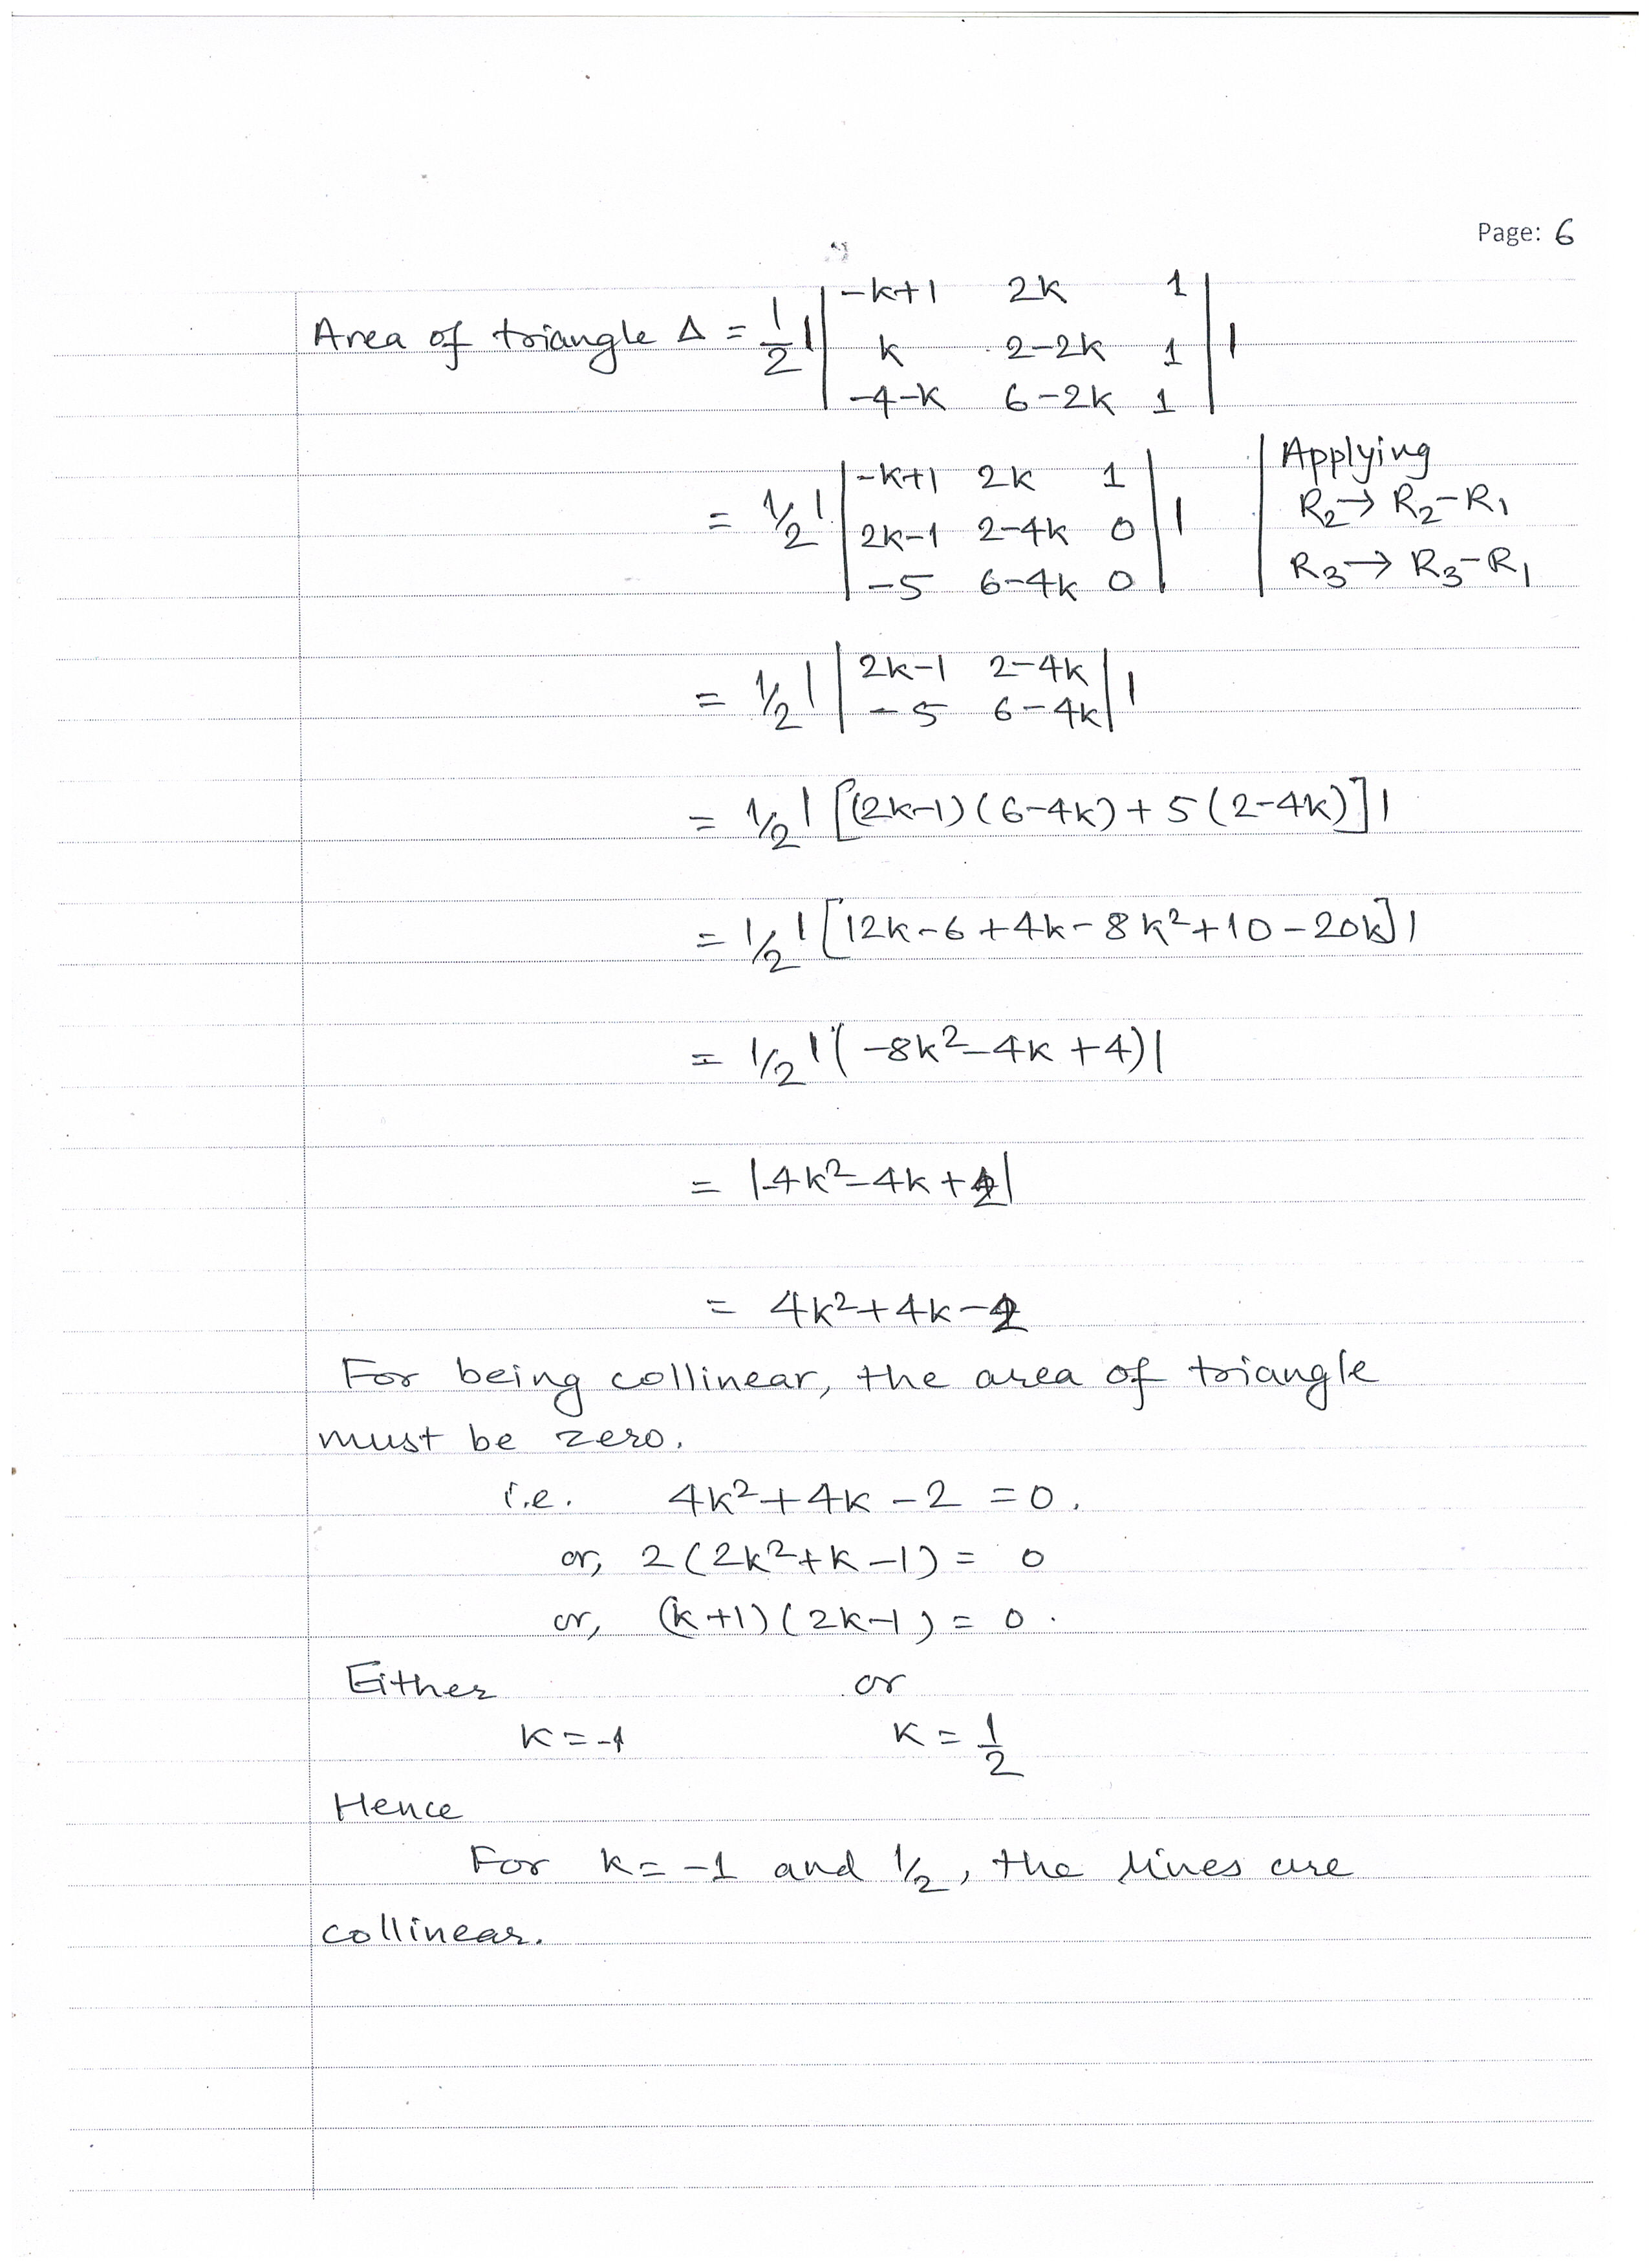 Page: 6
Area of triangle Δ = 1/2 | | -k+1 2k 1 | |
k 2-2k 1
-4-k 6-2k 1
= 1/2 | | -k+1 2k 1 | | | Applying
2k-1 2-4k 0 R2→ R2-R1
-5 6-4k 0 R3→ R3-R1
= 1/2 | | 2k-1 2-4k | |
-5 6-4k
= 1/2 | [(2k-1)(6-4k)+5(2-4k)] |
= 1/2 | [12k-6+4k-8k²+10-20k] |
= 1/2 | (-8k²-4k+4) |
= |-4k²-4k+2|
= 4k²+4k-2
For being collinear, the area of triangle
must be zero.
i.e. 4k²+4k-2 =0.
or, 2(2k²+k-1)= 0
or, (k+1)(2k-1)= 0.
Either or
k=-1 k=1/2
Hence
For k=-1 and 1/2, the lines are
collinear.